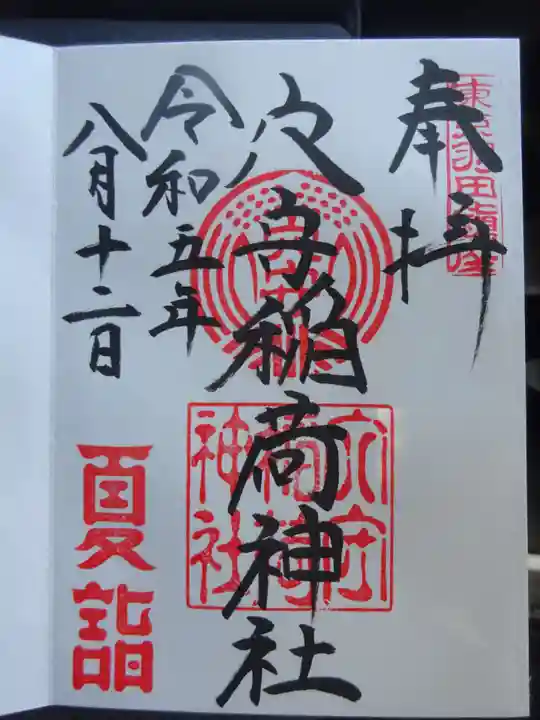 奉拝
東京羽田鎮座
穴守稲荷神社
穴守稲荷神社
令和五年
八月十二日
夏詣